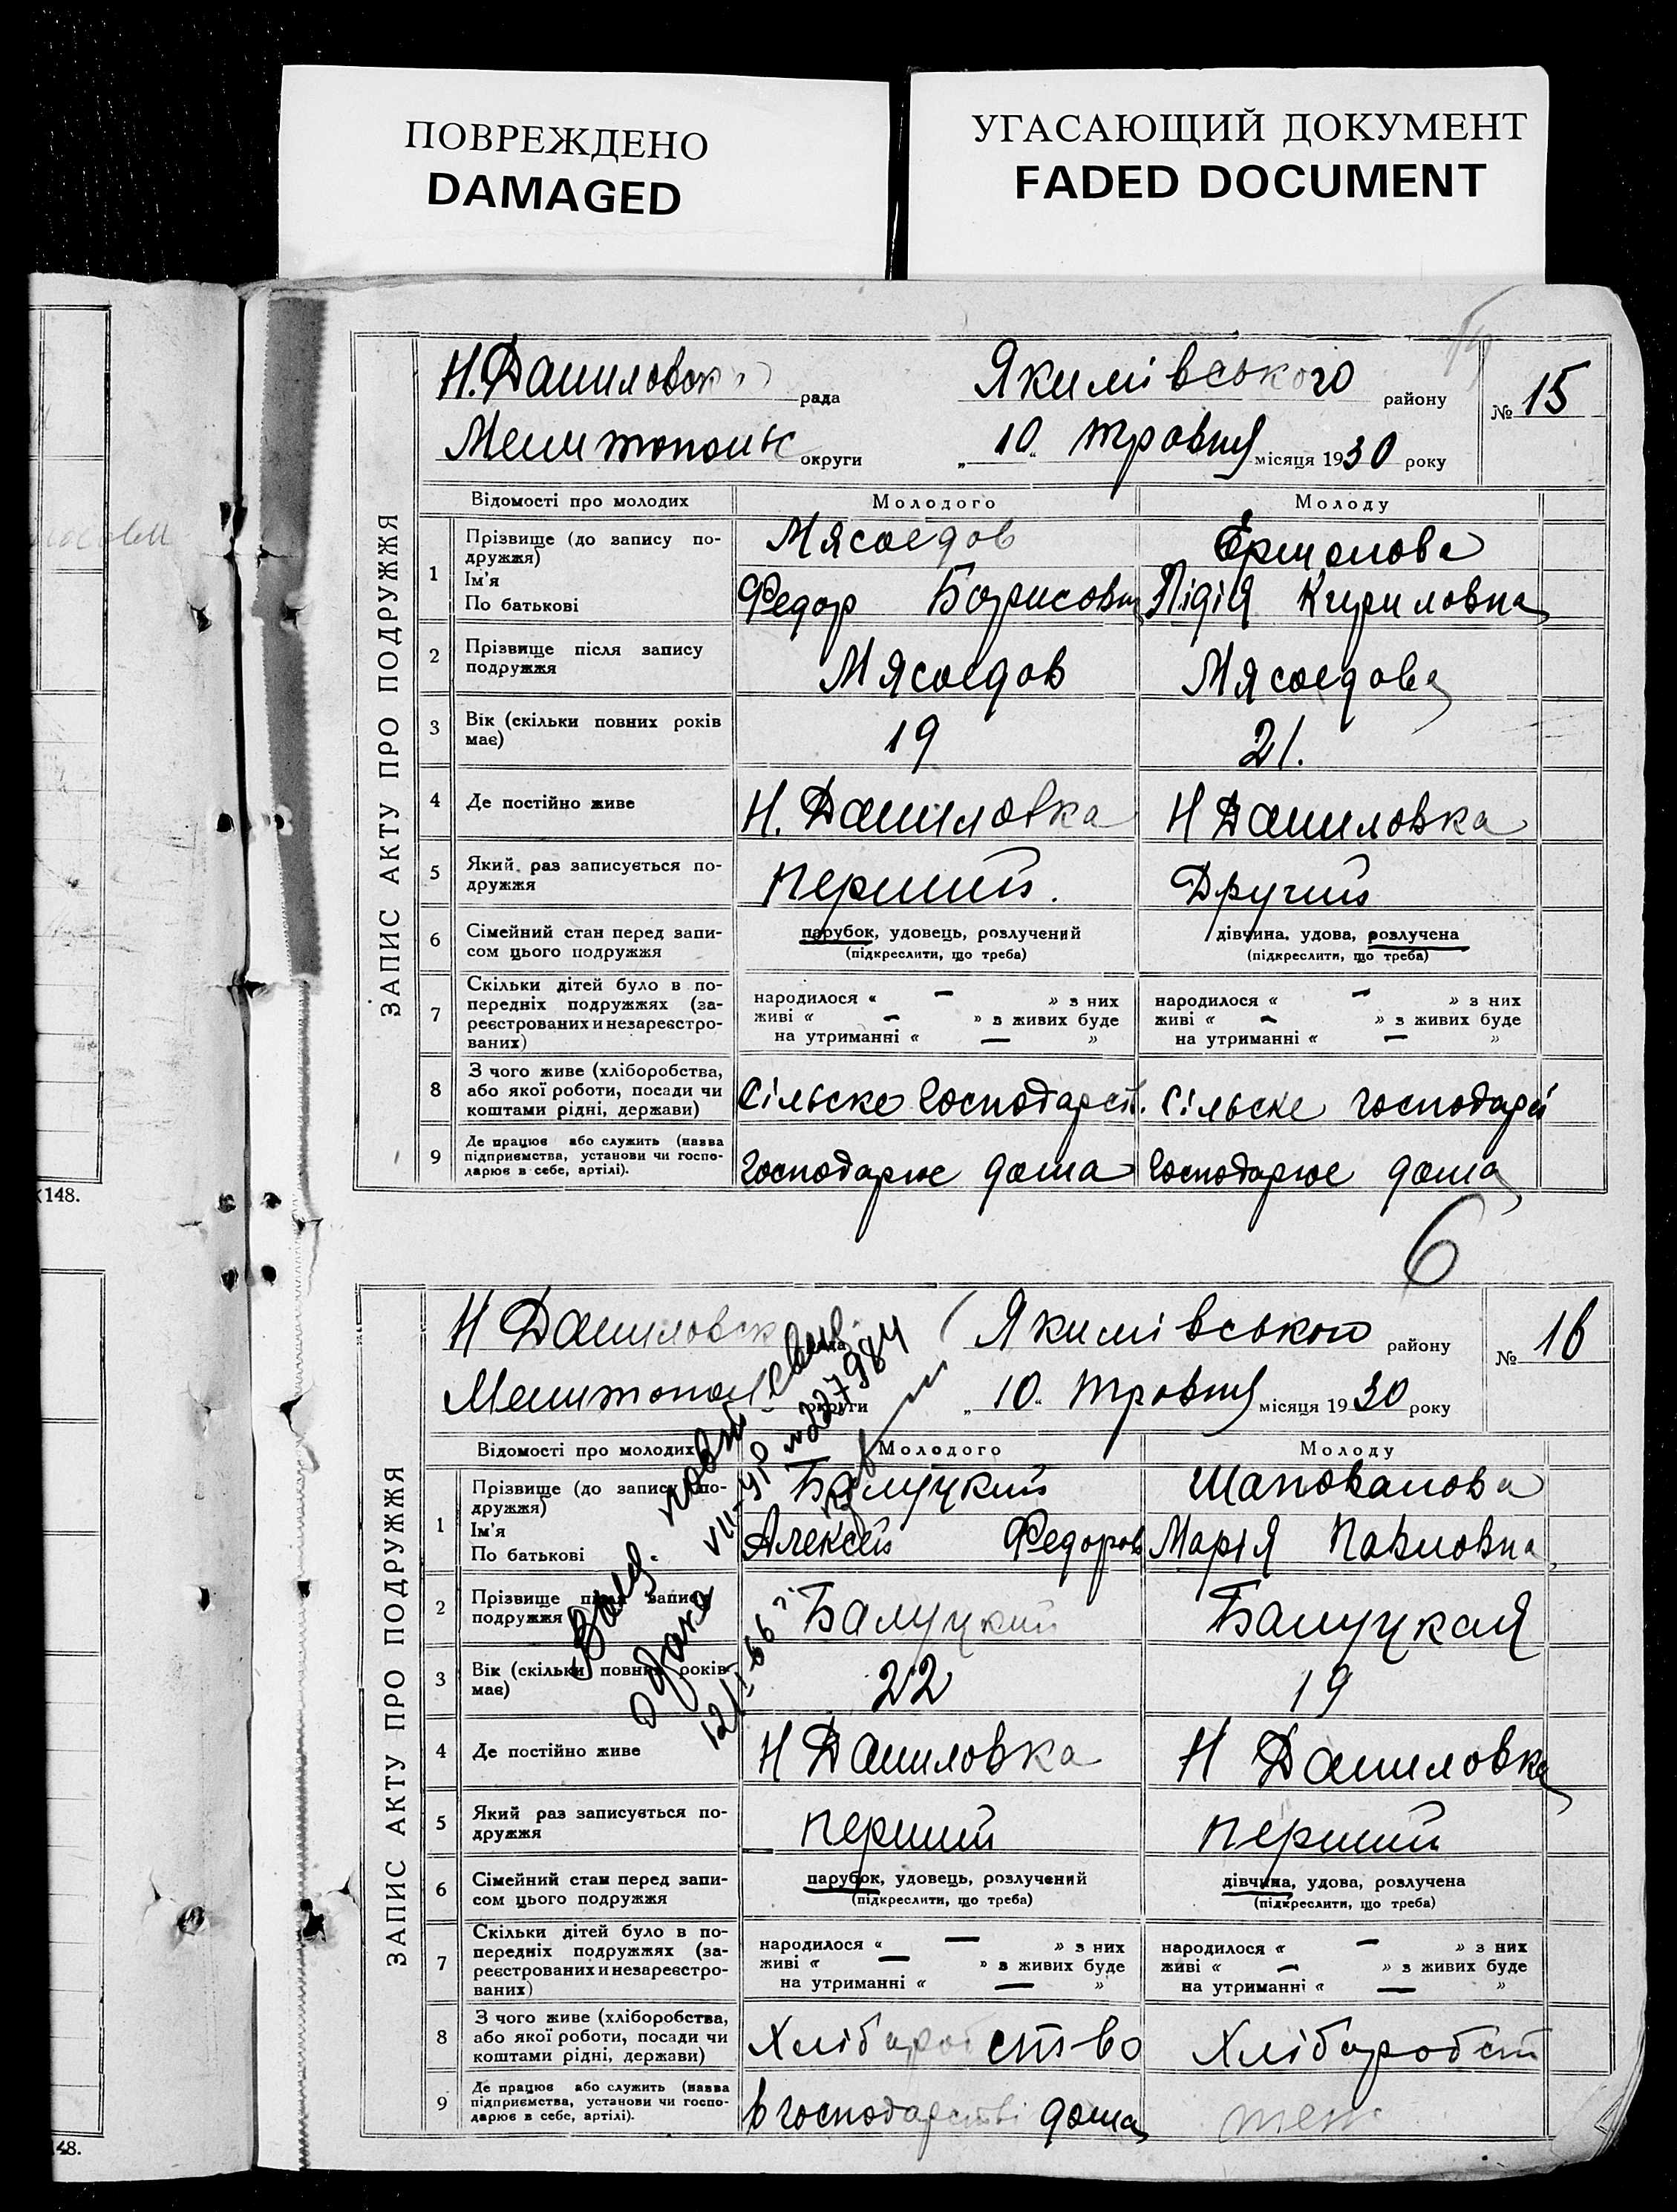 ПОВРЕЖДЕНО
DAMAGED
УГАСАЮЩИЙ ДОКУМЕНТ
FADED DOCUMENT
ЗАПИС АКТУ ПРО ПОДРУЖЖЯ
Н. Даниловск рада Якимівського району № 15
Мелитопольс округи „10“ травня місяця 1930 року
Відомості про молодих Молодого Молоду
1 Прізвище (до запису по-
дружжя) Мясоедов Ермолова
Ім'я
По батькові Федор Борисович Лідія Кириловна
2 Прізвище після запису
подружжя Мясоедов Мясоедова
3 Вік (скільки повних років
має) 19 21.
4 Де постійно живе Н. Даниловка Н Даниловка
5 Який раз записується по-
дружжя перший. Другий
6 Сімейний стан перед запи-
сом цього подружжя
парубок, удовець, розлучений
(підкреслити, що треба)
дівчина, удова, розлучена
(підкреслити, що треба)
7 Скільки дітей було в по-
передніх подружжях (за-
реєстрованих и незареєстро-
ваних)
народилося « — » з них
живі « — » з живих буде
на утриманні « — »
народилося « — » з них
живі « — » з живих буде
на утриманні « — »
8 З чого живе (хліборобства,
або якої роботи, посади чи
коштами рідні, держави)
Сільске господарст. Сільске господарст
9 Де працює або служить (назва
підприємства, установи чи госпо-
дарює в себе, артілі).
Господарює дома Господарює дома
148.
6
ЗАПИС АКТУ ПРО ПОДРУЖЖЯ
Н Даниловск рада Якимівського району № 16
Мелитопол округи „10“ травня місяця 1930 року
Відомості про молодих Молодого Молоду
1 Прізвище (до запису по-
дружжя) Балуцкий Шаповалова
Ім'я
По батькові Алексей Федоров Марія Павловна
2 Прізвище після запису
подружжя Балуцкий Балуцкая
3 Вік (скільки повних років
має) 22 19
4 Де постійно живе Н Даниловка Н Даниловка
5 Який раз записується по-
дружжя перший перший
6 Сімейний стан перед запи-
сом цього подружжя
парубок, удовець, розлучений
(підкреслити, що треба)
дівчина, удова, розлучена
(підкреслити, що треба)
7 Скільки дітей було в по-
передніх подружжях (за-
реєстрованих и незареєстро-
ваних)
народилося « — » з них
живі « — » з живих буде
на утриманні « — »
народилося « — » з них
живі « — » з живих буде
на утриманні « — »
8 З чого живе (хліборобства,
або якої роботи, посади чи
коштами рідні, держави)
Хліборобство Хлібаробст
9 Де працює або служить (назва
підприємства, установи чи госпо-
дарює в себе, артілі).
в господарстві дома теж
48.
повт. свид.
о браке VII-УР №227984